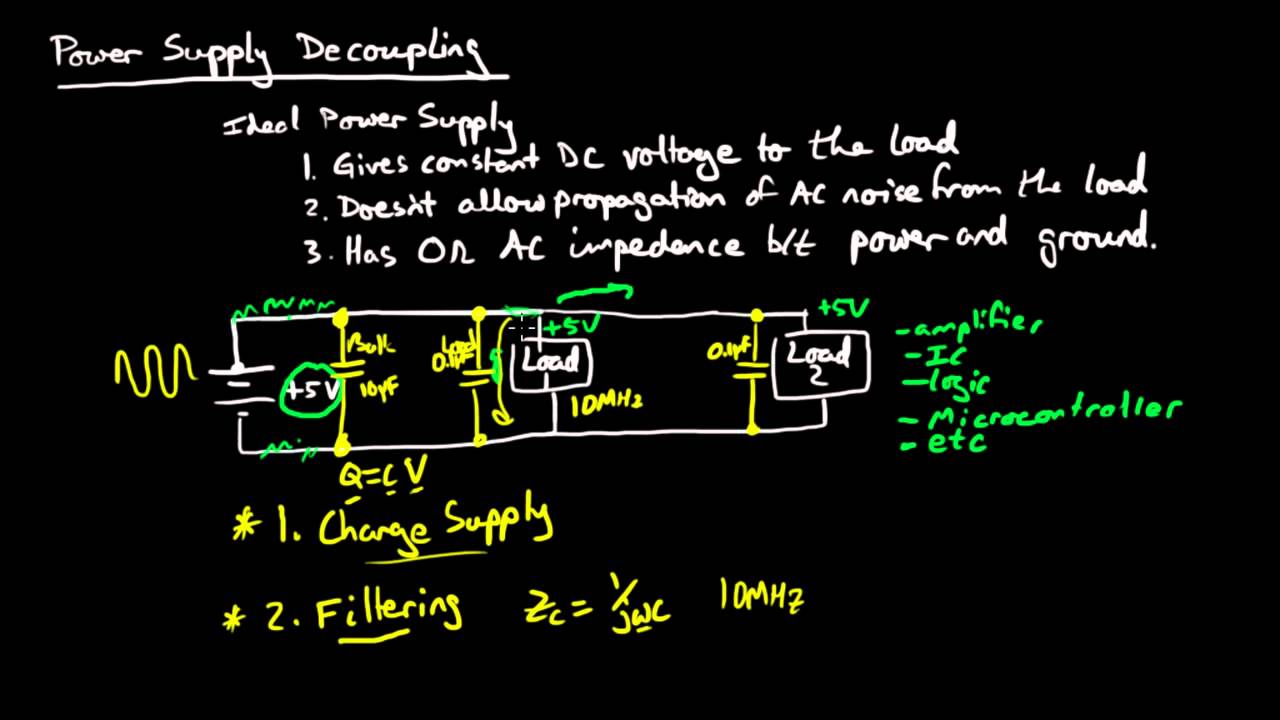 Power Supply Decoupling
Ideal Power Supply
1. Gives constant DC voltage to the load
2. Doesn't allow propagation of AC noise from the load
3. Has 0Ω AC impedence b/t power and ground.
+5V
Bulk
10µF
Load
0.1µF
+5V
Load
10MHz
0.1µF
+5V
Load
2
- amplifier
- IC
- logic
- Microcontroller
- etc
Q=CV
* 1. Charge Supply
* 2. Filtering Zc = 1/jωc 10MHz